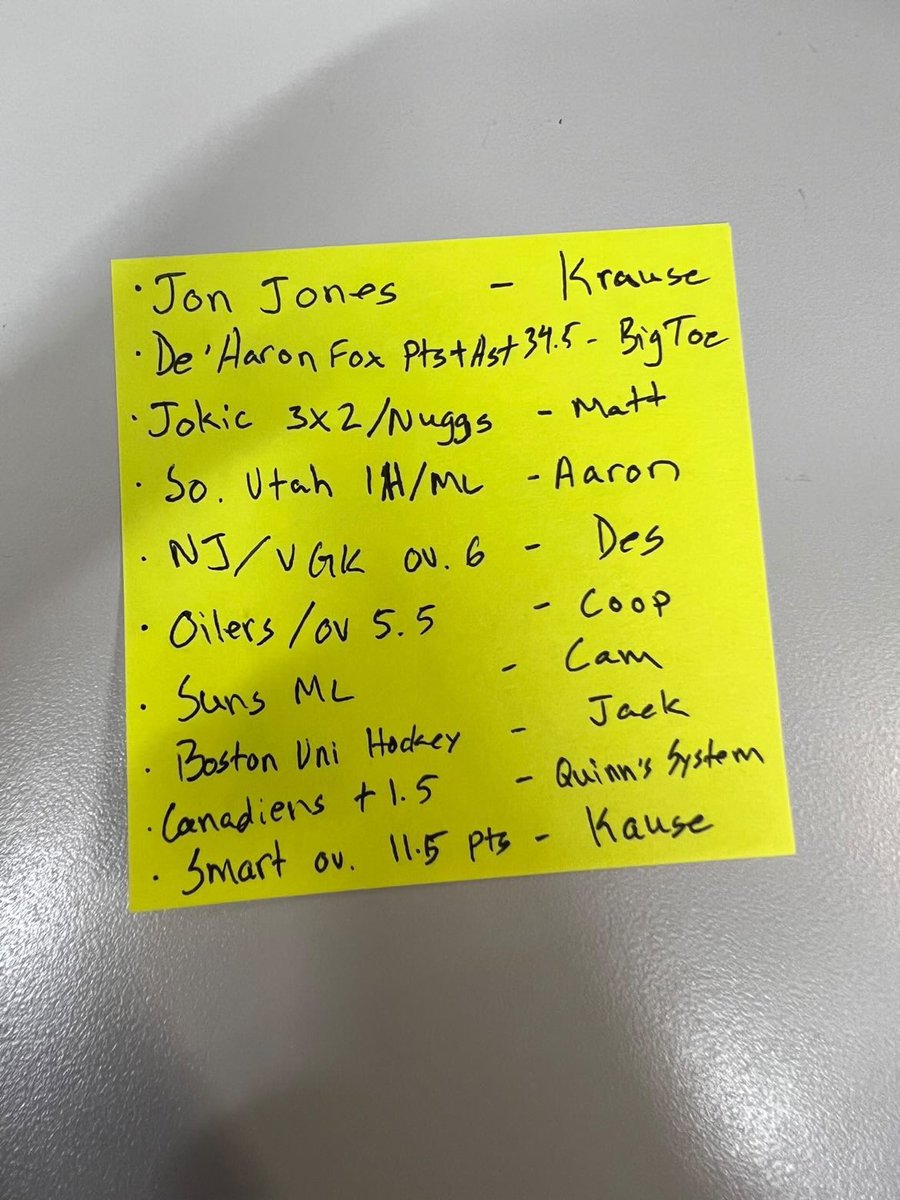 · Jon Jones - Krause
· De'Aaron Fox Pts+Ast 34.5 - Big Toe
· Jokic 3x2/Nuggs - Matt
· So. Utah 1H/ML - Aaron
· NJ/VGK ov. 6 - Des
· Oilers/ov 5.5 - Coop
· Suns ML - Cam
· Boston Uni Hockey - Jack
· Canadiens +1.5 - Quinn's System
· Smart ov. 11.5 pts - Kause